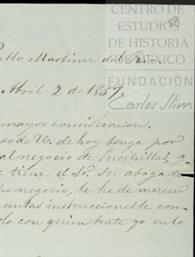 CENTRO DE
ESTUDIOS
DE HISTORIA
DE MÉXICO
FUNDACIÓN
Carlos Slim
Pablo Martinez del Rio
Abril 2 de 1857
mayor consideracion.
de U. de hoy tengo por
al negocio de Encinillas, a
tiene el Sr. su abogado
negocio, le he de merecer
instrucciones le com
con quien trate yo en lo